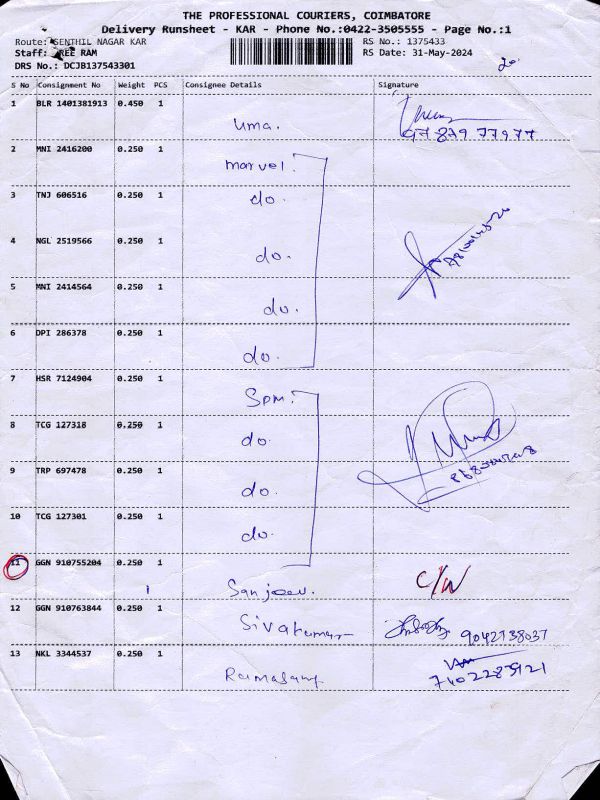 THE PROFESSIONAL COURIERS, COIMBATORE
Delivery Runsheet - KAR - Phone No.:0422-3505555 - Page No.:1
Route: SENTHIL NAGAR KAR RS No.: 1375433
Staff: REE RAM RS Date: 31-May-2024
DRS No.: DCJB137543301
S No Consignment No Weight PCS Consignee Details Signature
1 BLR 1401381913 0.450 1 Uma.
97 879 77977
2 MNI 2416200 0.250 1 marvel.
3 TNJ 606516 0.250 1 do.
4 NGL 2519566 0.250 1 do.
5 MNI 2414564 0.250 1 do.
6 DPI 286378 0.250 1 do.
7 HSR 7124904 0.250 1 Spm.
8 TCG 127318 0.250 1 do.
9 TRP 697478 0.250 1 do.
10 TCG 127301 0.250 1 do.
11 GGN 910755204 0.250 1 Sanjeev. C/N
12 GGN 910763844 0.250 1 Sivakumar 9042738037
13 NKL 3344537 0.250 1 Ramasamy 7402283921